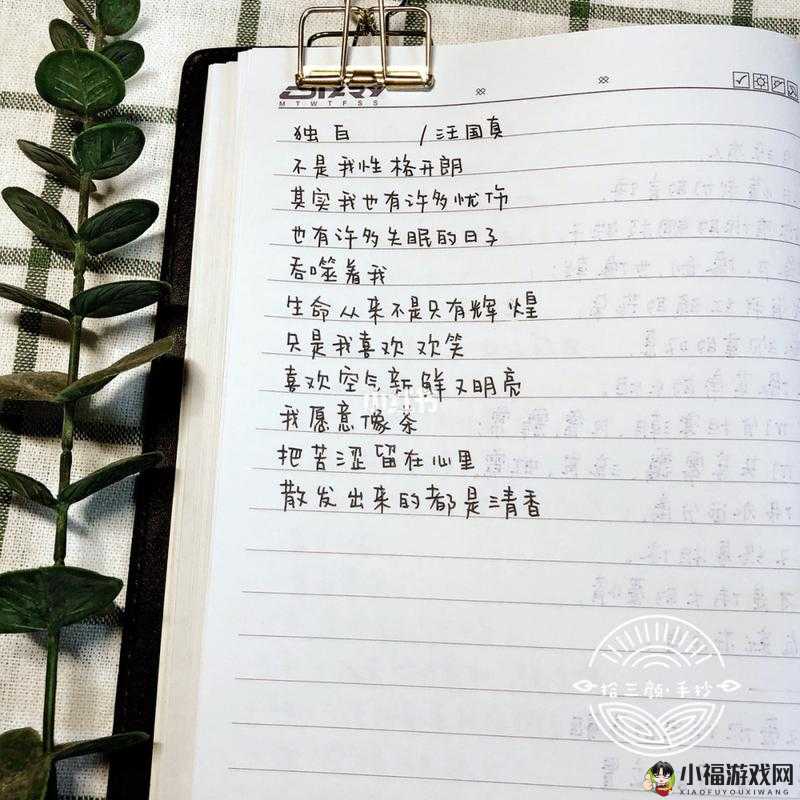 MTWTFSS
独白 /汪国真
不是我性格开朗
其实我也有许多忧伤
也有许多失眠的日子
吞噬着我
生命从来不是只有辉煌
只是我喜欢欢笑
喜欢空气新鲜又明亮
我愿意像茶
把苦涩留在心里
散发出来的都是清香
小红书
拾三颜·手抄
小福游戏网
XIAOFUYOUXIWANG